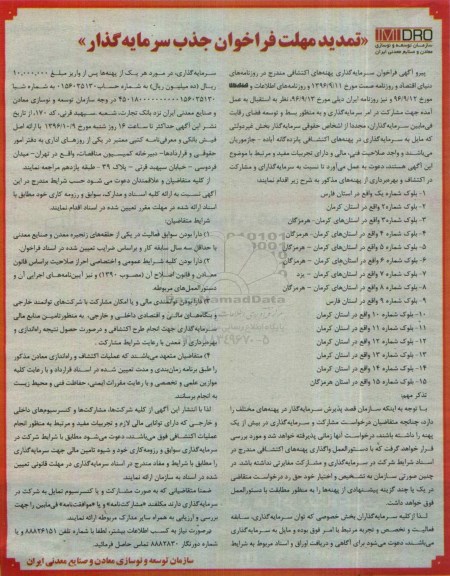 IMIDRO
سازمان توسعه و نوسازی
معادن و صنایع معدنی ایران
«تمدید مهلت فراخوان جذب سرمایه‌گذار»
پیرو آگهی فراخوان سرمایه‌گذاری پهنه‌های اکتشافی مندرج در روزنامه‌های
دنیای اقتصاد و روزنامه صنعت مورخ ۱۳۹۶/۹/۱۱ و روزنامه‌های اطلاعات و
مورخ ۹۶/۹/۱۲ و نیز روزنامه ایران دیلی مورخ ۹۶/۹/۱۳، نظر به استقبال به عمل
آمده جهت مشارکت در امر سرمایه‌گذاری و به منظور بسط و توسعه فضای رقابت
فی‌مابین سرمایه‌گذاران، مجدداً از اشخاص حقوقی سرمایه‌گذار بخش غیردولتی
که مایل به سرمایه‌گذاری در پهنه‌های اکتشافی پانزده‌گانه آماده - جازموریان
می‌باشند و واجد صلاحیت فنی، مالی و دارای تجربیات مفید و مرتبط با موضوع
این آگهی هستند، دعوت به عمل می‌آورد تا نسبت به سرمایه‌گذاری و مشارکت
در اکتشاف و بهره‌برداری از پهنه‌های مذکور به شرح زیر اقدام نمایند:
۱- بلوک شماره یک واقع در استان فارس
۲- بلوک شماره ۲ واقع در استان کرمان
۳- بلوک شماره ۳ واقع در استان‌های کرمان- هرمزگان
۴- بلوک شماره ۴ واقع در استان‌های کرمان - هرمزگان
۵- بلوک شماره ۵ واقع در استان‌های کرمان - هرمزگان
۶- بلوک شماره ۶ واقع در استان‌های کرمان - هرمزگان
۷- بلوک شماره ۷ واقع در استان‌های کرمان - یزد
۸- بلوک شماره ۸ واقع در استان‌های کرمان - هرمزگان
۹- بلوک شماره ۹ واقع در استان فارس
۱۰- بلوک شماره ۱۰ واقع در استان کرمان
۱۱- بلوک شماره ۱۱ واقع در استان کرمان
۱۲- بلوک شماره ۱۲ واقع در استان کرمان
۱۳- بلوک شماره ۱۳ واقع در استان کرمان
۱۴- بلوک شماره ۱۴ واقع در استان کرمان
۱۵- بلوک شماره ۱۵ واقع در استان هرمزگان
تذکر مهم:
با توجه به اینکه سازمان قصد پذیرش سرمایه‌گذار در پهنه‌های مختلف را
دارد، چنانچه متقاضیان درخواست مشارکت و سرمایه‌گذاری در بیش از یک
پهنه را داشته باشند، درخواست آنها زمانی پذیرفته خواهد شد و مورد بررسی
قرار خواهد گرفت که با دستورالعمل واگذاری پهنه‌های اکتشافی مندرج در
اسناد شرایط شرکت در سرمایه‌گذاری و مشارکت مغایرتی نداشته باشد. در
چنین صورتی سازمان به تشخیص و اختیار خود حق رد درخواست متقاضی
در یک یا چند گزینه پیشنهادی از پهنه‌ها را به منظور مطابقت با دستورالعمل
فوق خواهد داشت.
لذا از کلیه سرمایه‌گذاران بخش خصوصی که توان سرمایه‌گذاری، سابقه
فعالیت و تخصصی و تجربه مرتبط با امر فوق بوده و مایل به سرمایه‌گذاری
می‌باشند، دعوت می‌شود برای آگاهی و دریافت اوراق و اسناد مربوط به شرایط
سرمایه‌گذاری، در مورد هر یک از پهنه‌ها پس از واریز مبلغ ۱۰,۰۰۰,۰۰۰
ریال (ده میلیون ریال) به شماره حساب ۱۵۶۰۳۵۱۳۰ به شماره شبا
در وجه سازمان توسعه و نوسازی معادن
و صنایع معدنی ایران نزد بانک تجارت، شعبه سپهبد قرنی، کد ۱۷۰، از تاریخ
نشر این آگهی حداکثر تا ساعت ۱۶ روز شنبه مورخ ۱۳۹۶/۱۰/۹ با ارائه اصل
فیش بانکی و معرفی‌نامه کتبی معتبر در یکی از روزهای اداری به دفتر امور
حقوقی و قراردادها- دبیرخانه کمیسیون مناقصات، واقع در تهران- میدان
فردوسی - خیابان سپهبد قرنی - پلاک ۳۹ - طبقه یازدهم مراجعه نمایند.
از کلیه متقاضیان و علاقمندان دعوت می شود حسب شرایط مندرج در این
آگهی نسبت به ارائه کلیه اسناد و مدارک، سوابق و رزومه کاری خود مطابق با
اسناد ارائه شده در مهلت مقرر تعیین شده در اسناد اقدام نمایند.
شرایط متقاضیان:
۱) دارا بودن سوابق فعالیت در یکی از حلقه‌های زنجیره معدن و صنایع معدنی
با حداقل سه سال سابقه کار و براساس ضرایب تعیین شده در اسناد فراخوان.
۲) دارا بودن کلیه شرایط عمومی و اختصاصی احراز صلاحیت براساس قانون
معادن و قانون اصلاح آن (مصوب ۱۳۹۰) و نیز آیین‌نامه‌های اجرایی آن و
دستورالعمل‌های مربوطه.
۳) دارا بودن توانمندی مالی و یا امکان مشارکت با شرکت‌های توانمند خارجی
و بنگاههای مالی و اقتصادی داخلی و خارجی، به منظور تامین منابع مالی
سرمایه‌گذاری جهت انجام طرح اکتشافی و درصورت حصول نتیجه راه‌اندازی و
بهره‌برداری از معدن با رعایت شرایط مشارکت.
۴) متقاضیان متعهد می‌باشند که عملیات اکتشاف و راه‌اندازی معادن مذکور
را طبق برنامه زمان‌بندی و مدت تعیین شده در اسناد قرارداد و با رعایت کلیه
موازین علمی و تخصصی و با رعایت مقررات ایمنی، حفاظت فنی و محیط زیست
به انجام برسانند.
لذا با انتشار این آگهی از کلیه شرکت‌ها، مشارکت‌ها و کنسرسیوم‌های داخلی
و خارجی که دارای توانایی مالی لازم و تجربیات مفید و مرتبط به منظور انجام
عملیات اکتشافی فوق می‌باشند، دعوت می‌شود مطابق با شرایط شرکت در
سرمایه‌گذاری سوابق و رزومه کاری خود و شیوه تامین مالی جهت سرمایه‌گذاری
را مطابق با شرایط و مفاد مندرج در اسناد سرمایه‌گذاری در مهلت قانونی تعیین
شده در اسناد به سازمان ارائه نمایند.
ضمناً متقاضیانی که به صورت مشارکت و یا کنسرسیوم تمایل به شرکت در
سرمایه‌گذاری دارند مکلفند «مشارکت‌نامه» و یا «موافقت‌نامه» فی‌مابین را جهت
بررسی و ارزیابی به همراه سایر مدارک مربوطه ارائه نمایند.
درصورت نیاز به کسب اطلاعات بیشتر، لطفا با شماره تلفن ۸۸۸۲۶۱۵۱ و یا
شماره دورنگار ۸۸۸۲۸۲۰ تماس حاصل فرمائید.
سازمان توسعه و نوسازی معادن و صنایع معدنی ایران